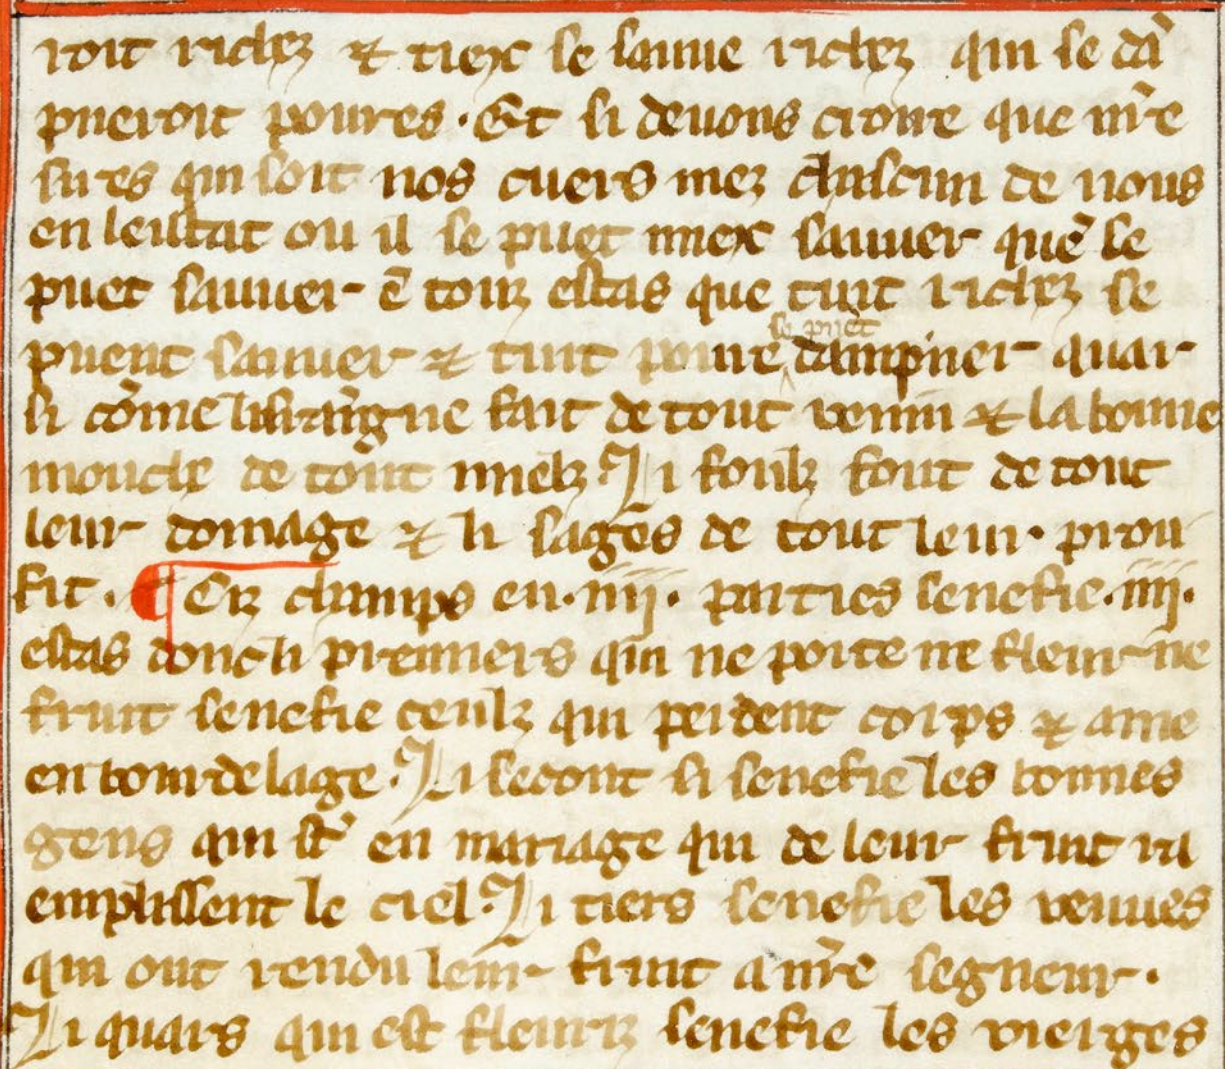 roit richez ⁊ tiex se sauue richez qui se dā
pneroit poures. Et si deuons croire que nr̄e
sires qui soit nos cuers mez chascun de nous
en lestat ou il se puet miex sauuer que se
puet sauuer ē touz estas que tuit richez se
puent sauuer ⁊ tuit poure se puet dampner quar
si cōme li araigne fait de tout venin ⁊ la bonne
mouche de tout mielz. Li folz font de tout
leur domage ⁊ li sages de tout leur prou
fit. ¶ Cez champs en .iiii. parties senefie .iiii.
estas donc li premiers qui ne porte ne fleur ne
fruit senefie ceulz qui perdent corps ⁊ ame
en tour de lage. Li secont si senefie les bonnes
gens qui st̄ en mariage qui de leur fruit ra
emplissent le ciel. Li tiers senefie les veuues
qui ont rendu leur fruit a nr̄e segneur.
Li quars qui est fleuriz senefie les vierges